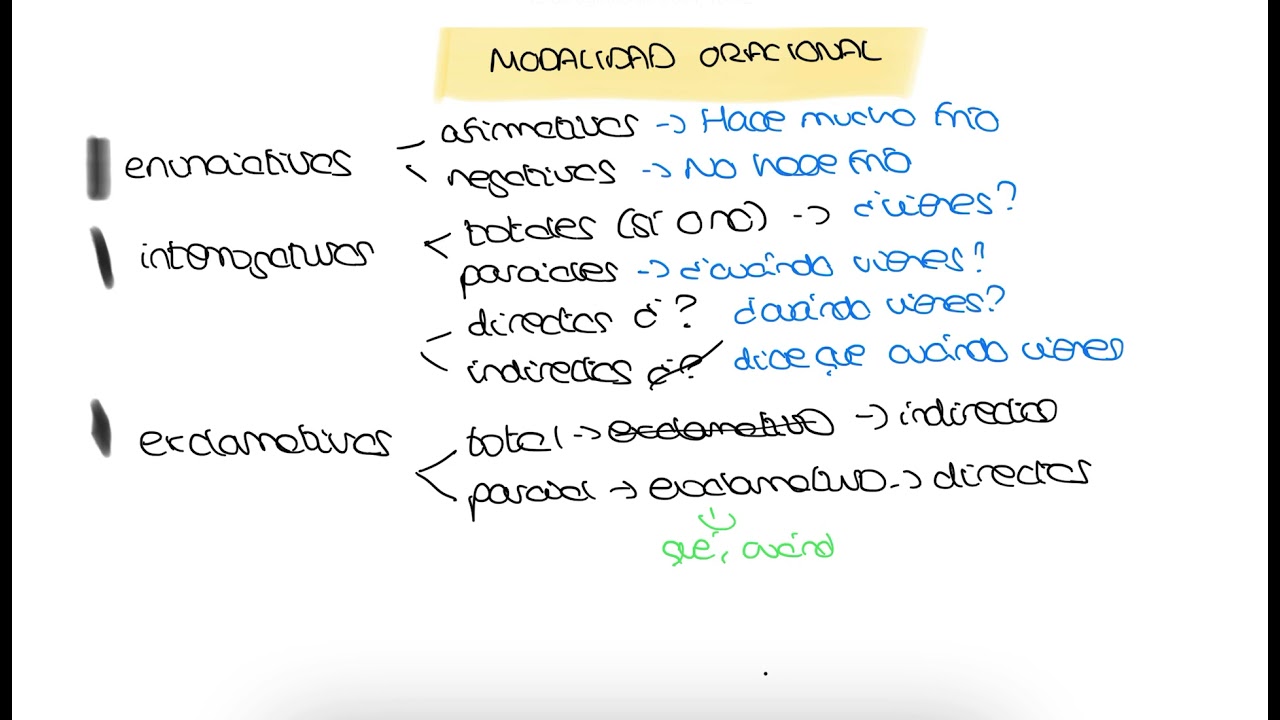 MODALIDAD ORACIONAL
enunciativas
afirmativas -> Hace mucho frío
negativas -> No hace frío
interrogativas
totales (sí o no) -> ¿vienes?
parciales -> ¿cuándo vienes?
directas ¿? ¿cuándo vienes?
indirectas ¿? dice que cuándo vienes
exclamativas
total -> exclamativo -> indirecta
parcial -> exclamativo -> directas
qué, cuánd